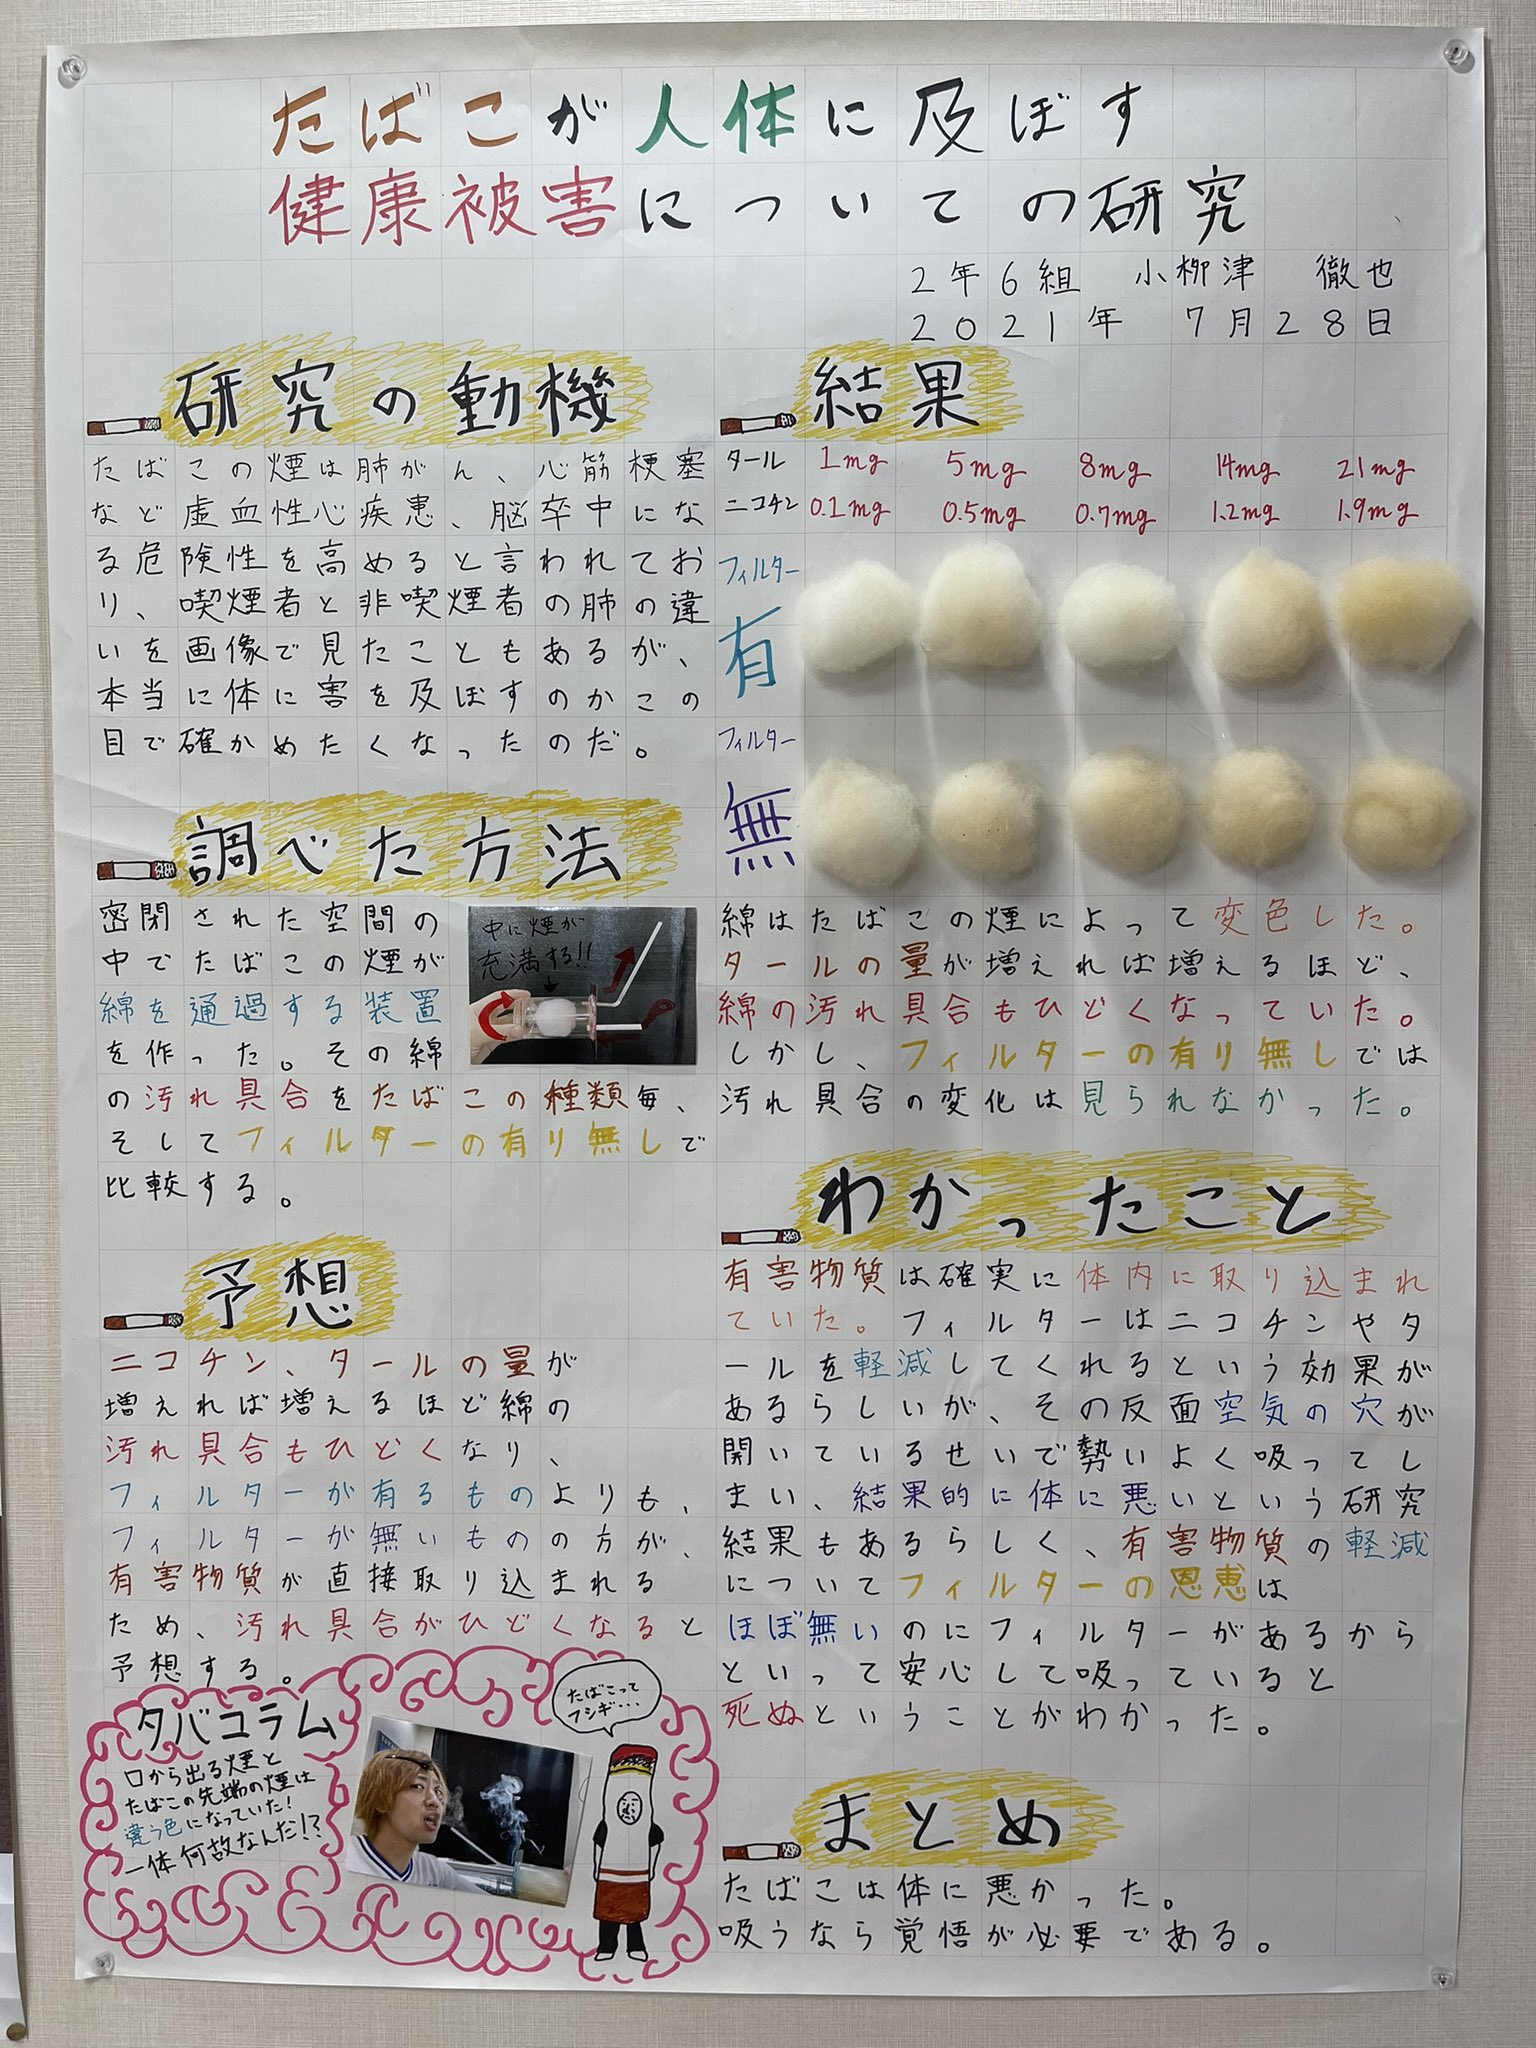 たばこが人体に及ぼす
健康被害についての研究
2年6組 小柳津 徹也
2021年 7月28日
研究の動機
たばこの煙は肺がん、心筋梗塞
など虚血性心疾患、脳卒中にな
る危険性を高めると言われてお
り、喫煙者と非喫煙者の肺の違
いを画像で見たこともあるが、
本当に体に害を及ぼすのかこの
目で確かめたくなったのだ。
調べた方法
密閉された空間の
中でたばこの煙が
綿を通過する装置
を作った。その綿
の汚れ具合をたばこの種類毎、
そしてフィルターの有り無しで
比較する。
中に煙が
充満する!!
予想
ニコチン、タールの量が
増えれば増えるほど綿の
汚れ具合もひどくなり、
フィルターが有るものよりも、
フィルターが無いものの方が、
有害物質が直接取り込まれる
ため、汚れ具合がひどくなると
予想する。
タバコラム
口から出る煙と
たばこの先端の煙は
違う色になっていた!
一体何故なんだ!?
たばこって
フシギ・・・
結果
タール 1mg 5mg 8mg 14mg 21mg
ニコチン 0.1mg 0.5mg 0.7mg 1.2mg 1.9mg
フィルター
有
フィルター
無
綿はたばこの煙によって変色した。
タールの量が増えれば増えるほど、
綿の汚れ具合もひどくなっていた。
しかし、フィルターの有り無しでは
汚れ具合の変化は見られなかった。
わかったこと
有害物質は確実に体内に取り込まれ
ていた。フィルターはニコチンやタ
ールを軽減してくれるという効果が
あるらしいが、その反面空気の穴が
開いているせいで勢いよく吸ってし
まい、結果的に体に悪いという研究
結果もあるらしく、有害物質の軽減
についてフィルターの恩恵は
ほぼ無いのにフィルターがあるから
といって安心して吸っていると
死ぬということがわかった。
まとめ
たばこは体に悪かった。
吸うなら覚悟が必要である。